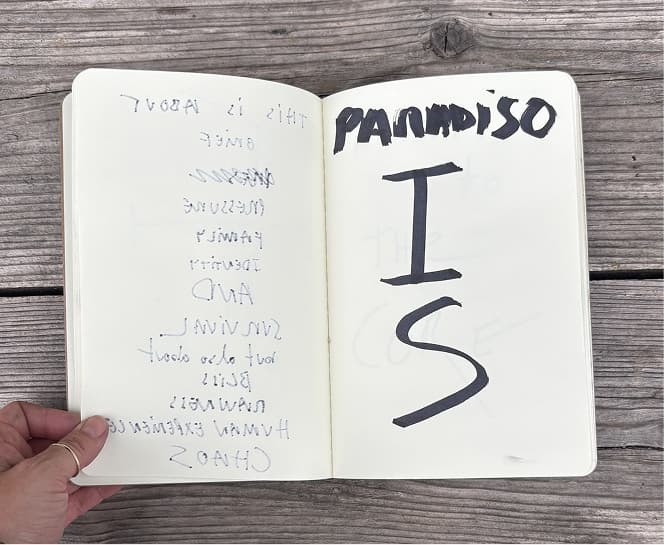 THIS IS ABOUT
GRIEF
PRESSURE
FAMILY
IDENTITY
AND
SURVIVAL
but also about
BLISS
RAWNESS
HUMAN EXPERIENCE
CHAOS
PARADISO
IS
to
THE
CORE